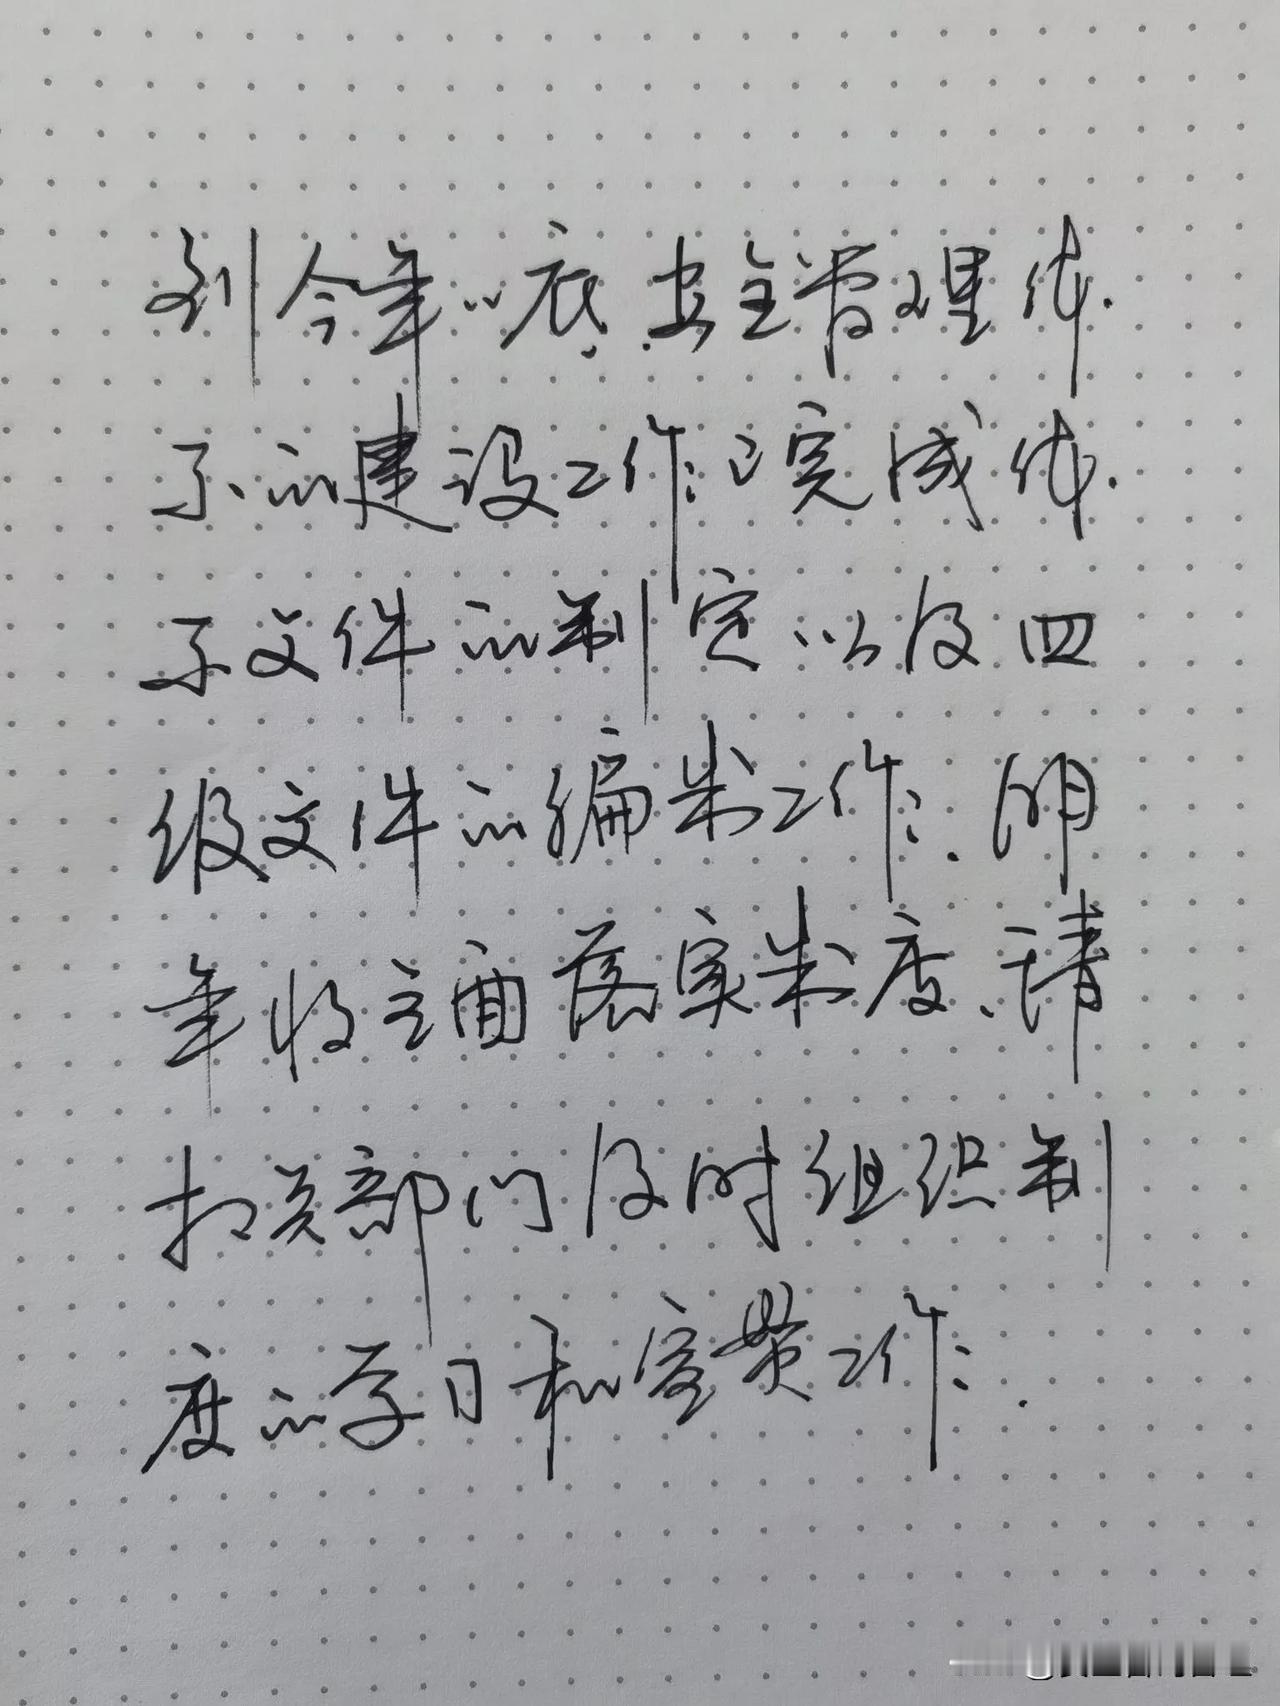 到今年底,安全管理体
系的建设工作已完成体
系文件的制定以及四
级文件的编制工作.明
年将全面落实制度,请
相关部门及时组织制
度的学习和宣贯工作.